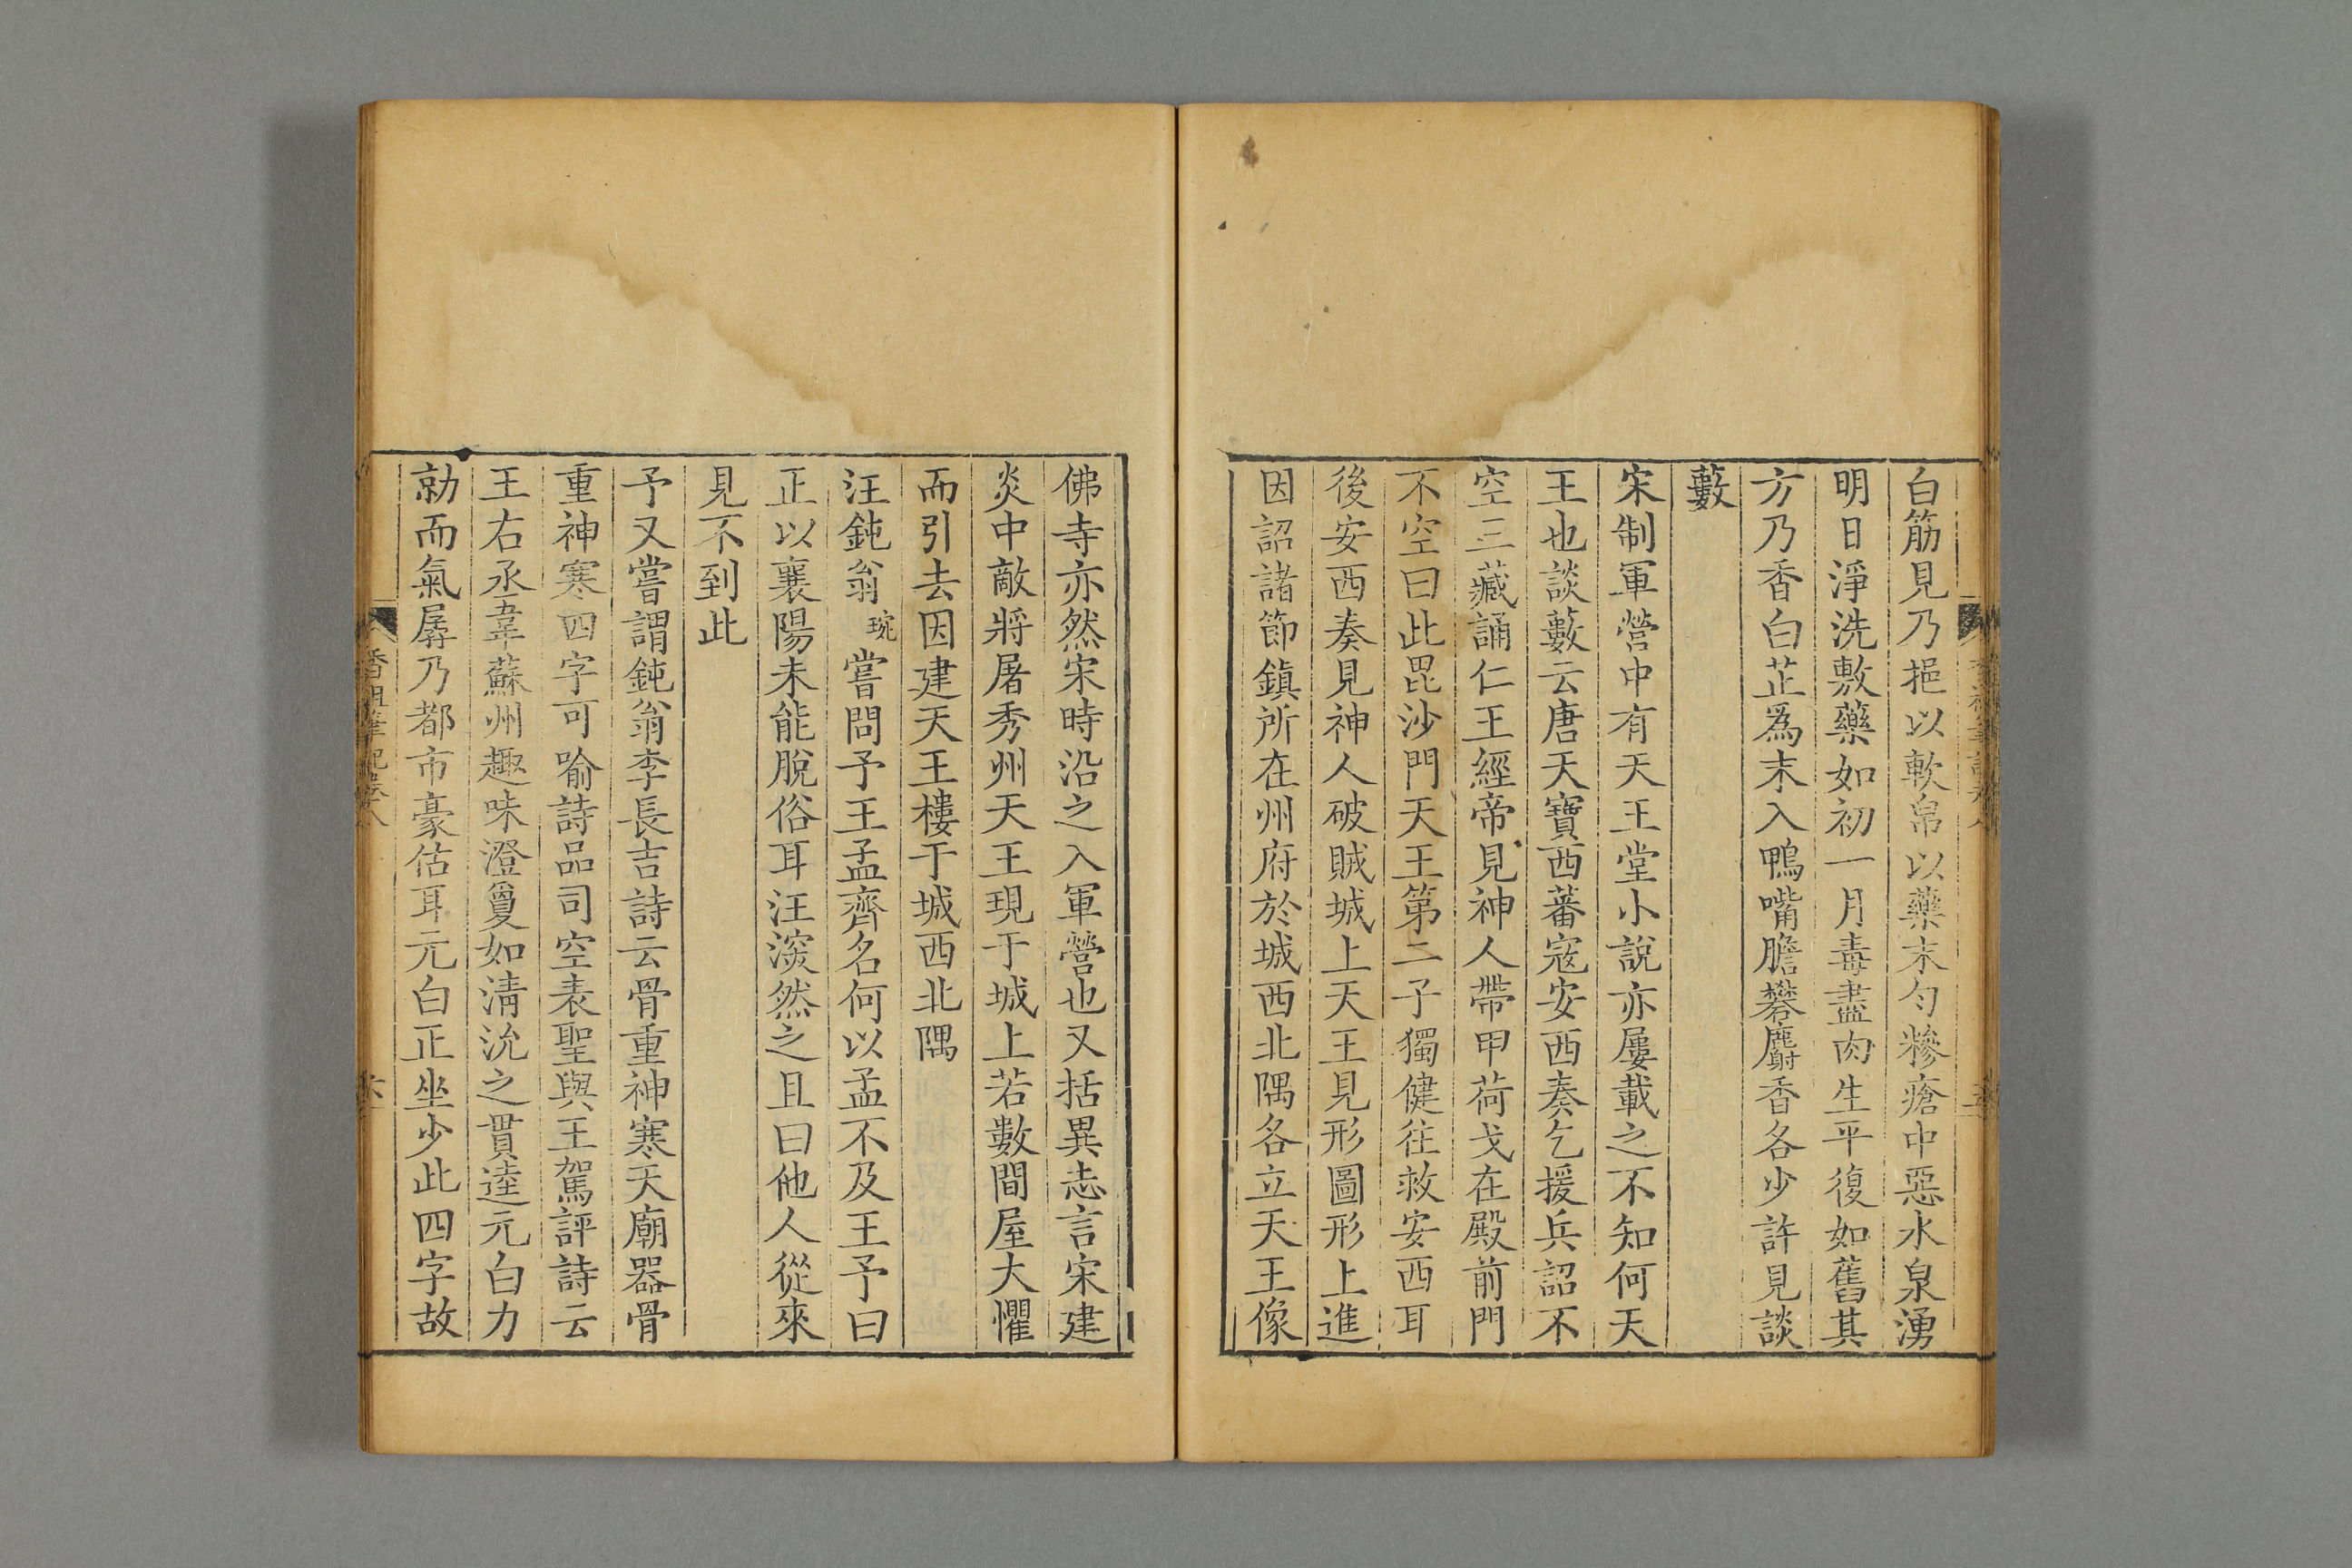 白筋見乃挹以軟帛以藥末勻糝瘡中惡水泉湧
明日淨洗敷藥如初一月毒盡肉生平復如舊其
方乃香白芷爲末入鴨嘴膽礬麝香各少許見談
藪
宋制軍營中有天王堂小說亦屢載之不知何天
王也談藪云唐天寶西蕃寇安西奏乞援兵詔不
空三藏誦仁王經帝見神人帶甲荷戈在殿前門
不空曰此毘沙門天王第二子獨健往救安西耳
後安西奏見神人破賊城上天王見形圖形上進
因詔諸節鎮所在州府於城西北隅各立天王像
佛寺亦然宋時沿之入軍營也又括異志言宋建
炎中敵將屠秀州天王現于城上若數間屋大懼
而引去因建天王樓于城西北隅
汪鈍翁琬嘗問予王孟齊名何以孟不及王予曰
正以襄陽未能脫俗耳汪深然之且曰他人從來
見不到此
予又嘗謂鈍翁李長吉詩云骨重神寒天廟器骨
重神寒四字可喻詩品司空表聖與王駕評詩云
王右丞韋蘇州趣味澄敻如清沇之貫逵元白力
勍而氣孱乃都市豪估耳元白正坐少此四字故
香祖筆記卷八